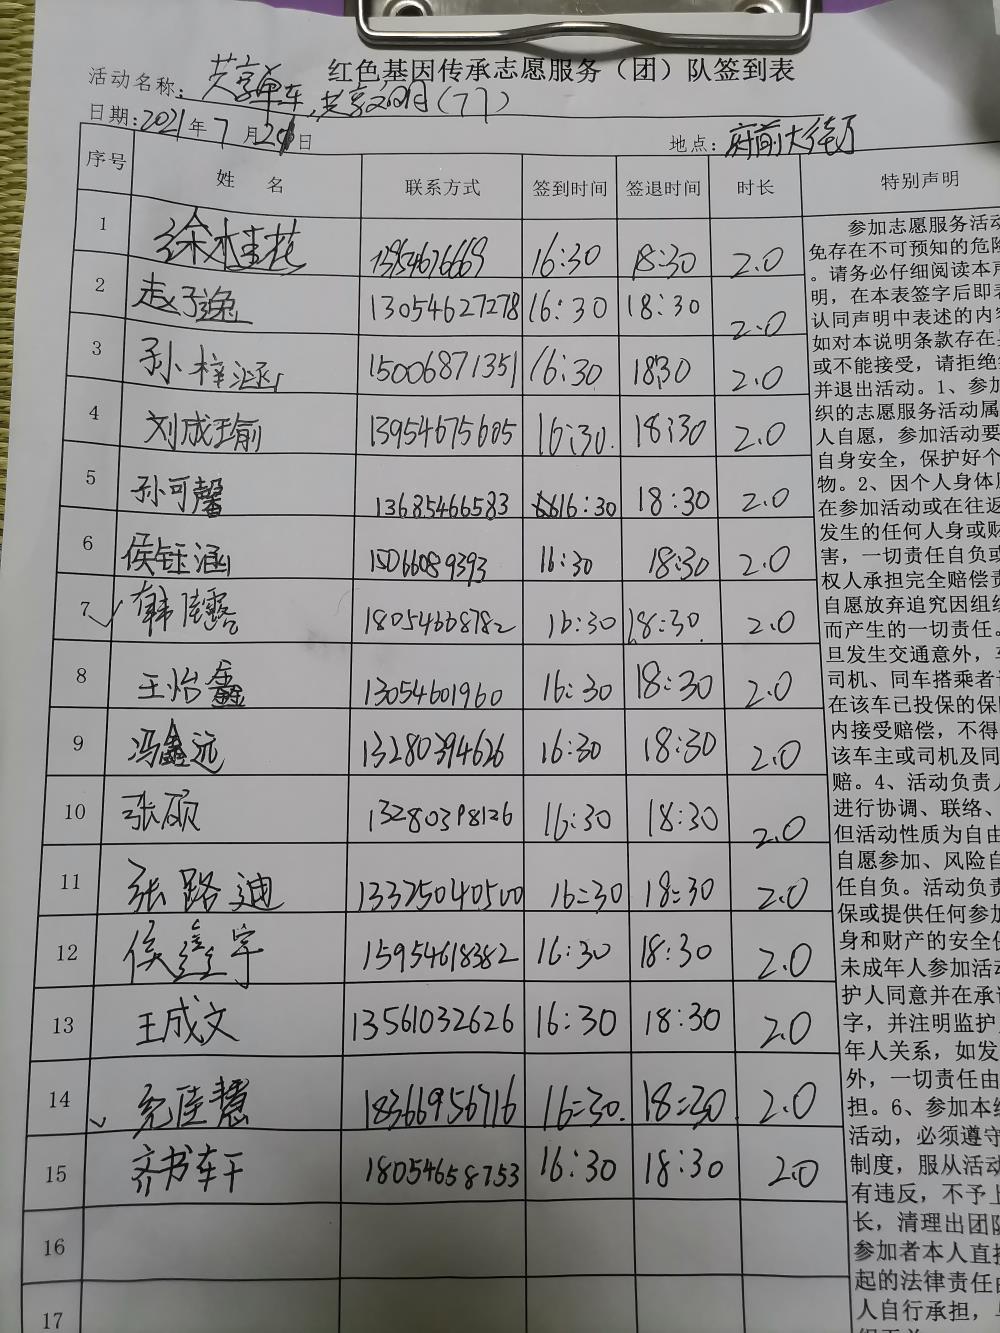 红色基因传承志愿服务（团）队签到表
活动名称：共享单车，共享文明（77）
日期：2021年7月2日
地点：府前大街
序号 姓名 联系方式 签到时间 签退时间 时长 特别声明
1 徐桂花 13954676669 16:30 18:30 2.0
2 赵子逸 13054627278 16:30 18:30 2.0
3 孙梓涵 15006871351 16:30 1830 2.0
4 刘成瑜 13954675605 16:30. 18:30 2.0
5 孙可馨 13685466583 16:30 18:30 2.0
6 侯钰涵 15066089393 16:30 18:30 2.0
7 韩佳露 18054668782 16:30 18:30. 2.0
8 王怡鑫 13054601960 16:30 18:30 2.0
9 冯鑫远 13280394626 16:30 18:30 2.0
10 张硕 13280398126 16:30 18:30 2.0
11 张路迪 13325040500 16=30 18=30 2.0
12 侯宇 15954618382 16:30 18:30 2.0
13 王成文 13561032626 16:30 18:30 2.0
14 佳慧 18366956716 16=30. 18=30. 2.0
15 齐书 18054658753 16:30 18:30 2.0
16
17
参加志愿服务活动
免存在不可预知的危险
。请务必仔细阅读本声
明，在本表签字后即表
认同声明中表述的内容
如对本说明条款存在
或不能接受，请拒绝
并退出活动。1、参加
织的志愿服务活动属
人自愿，参加活动要
自身安全，保护好个
物。2、因个人身体
在参加活动或在往返
发生的任何人身或财
害，一切责任自负或
权人承担完全赔偿责
自愿放弃追究因组织
而产生的一切责任。
旦发生交通意外，
司机、同车搭乘者
在该车已投保的保
内接受赔偿，不得
该车主或司机及同
赔。4、活动负责人
进行协调、联络、
但活动性质为自由
自愿参加、风险自
任自负。活动负责
保或提供任何参加
身和财产的安全
未成年人参加活动
护人同意并在承
字，并注明监护
年人关系，如发
外，一切责任由
担。6、参加本组
活动，必须遵守
制度，服从活动
有违反，不予上
长，清理出团队
参加者本人直接
起的法律责任由
人自行承担，